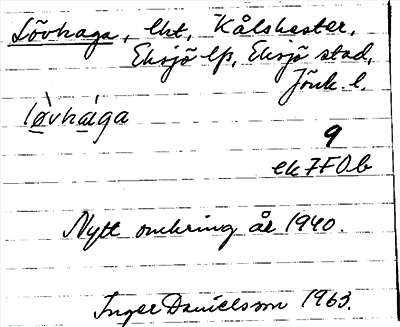 Lövhaga, lht, Kålshester,
Eksjö lfs, Eksjö stad,
Jönk. l.
lø̀vhá̱i̱ga
9
ek7F0b
Nytt omkring år 1940.
Inger Danielsson 1963.